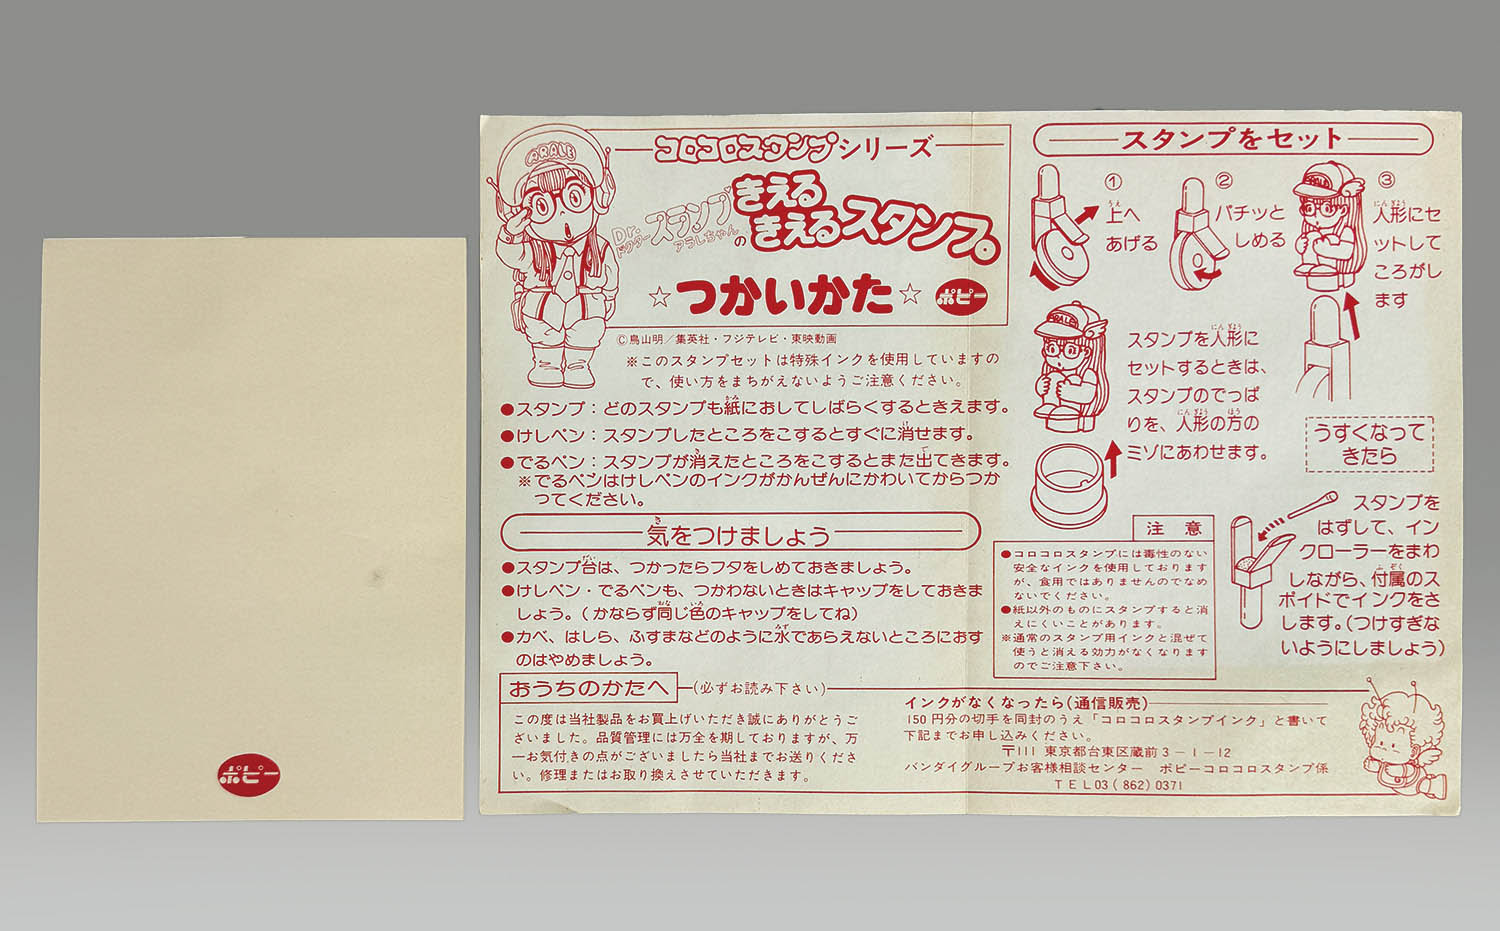 ポピー
ARALE
コロコロスタンプシリーズ
Dr.スランプ
ドクター
アラレちゃんの
きえる
きえるスタンプ。
☆つかいかた☆
ポピー
©鳥山明／集英社・フジテレビ・東映動画
※このスタンプセットは特殊インクを使用していますの
で、使い方をまちがえないようご注意ください。
●スタンプ：どのスタンプも紙におしてしばらくするときえます。
●けしペン：スタンプしたところをこするとすぐに消せます。
●でるペン：スタンプが消えたところをこするとまた出てきます。
※でるペンはけしペンのインクがかんぜんにかわいてからつか
ってください。
気をつけましょう
●スタンプ台は、つかったらフタをしめておきましょう。
●けしペン・でるペンも、つかわないときはキャップをしておきま
しょう。(かならず同じ色のキャップをしてね)
●カベ、はしら、ふすまなどのように水であらえないところにおす
のはやめましょう。
おうちのかたへ
(必ずお読み下さい)
この度は当社製品をお買上げいただき誠にありがとうご
ざいました。品質管理には万全を期しておりますが、万
一お気付きの点がございましたら当社までお送りくださ
い。修理またはお取り換えさせていただきます。
スタンプをセット
①
上へ
あげる
②
パチッと
しめる
③
人形にセ
ットして
ころがし
ます
ARALE
ARALE
スタンプを人形に
セットするときは、
スタンプのでっぱ
りを、人形の方の
ミゾにあわせます。
うすくなって
きたら
スタンプを
はずして、イン
クローラーをまわ
しながら、付属のス
ポイドでインクをさ
します。(つけすぎな
いようにしましょう)
注意
●コロコロスタンプには毒性のない
安全なインクを使用しております
が、食用ではありませんのでなめ
ないでください。
●紙以外のものにスタンプすると消
えにくいことがあります。
※通常のスタンプ用インクと混ぜて
使うと消える効力がなくなります
のでご注意下さい。
インクがなくなったら(通信販売)
150円分の切手を同封のうえ「コロコロスタンプインク」と書いて
下記までお申し込みください。
〒111 東京都台東区蔵前3－1－12
バンダイグループお客様相談センター　ポピーコロコロスタンプ係
TEL03(862)0371